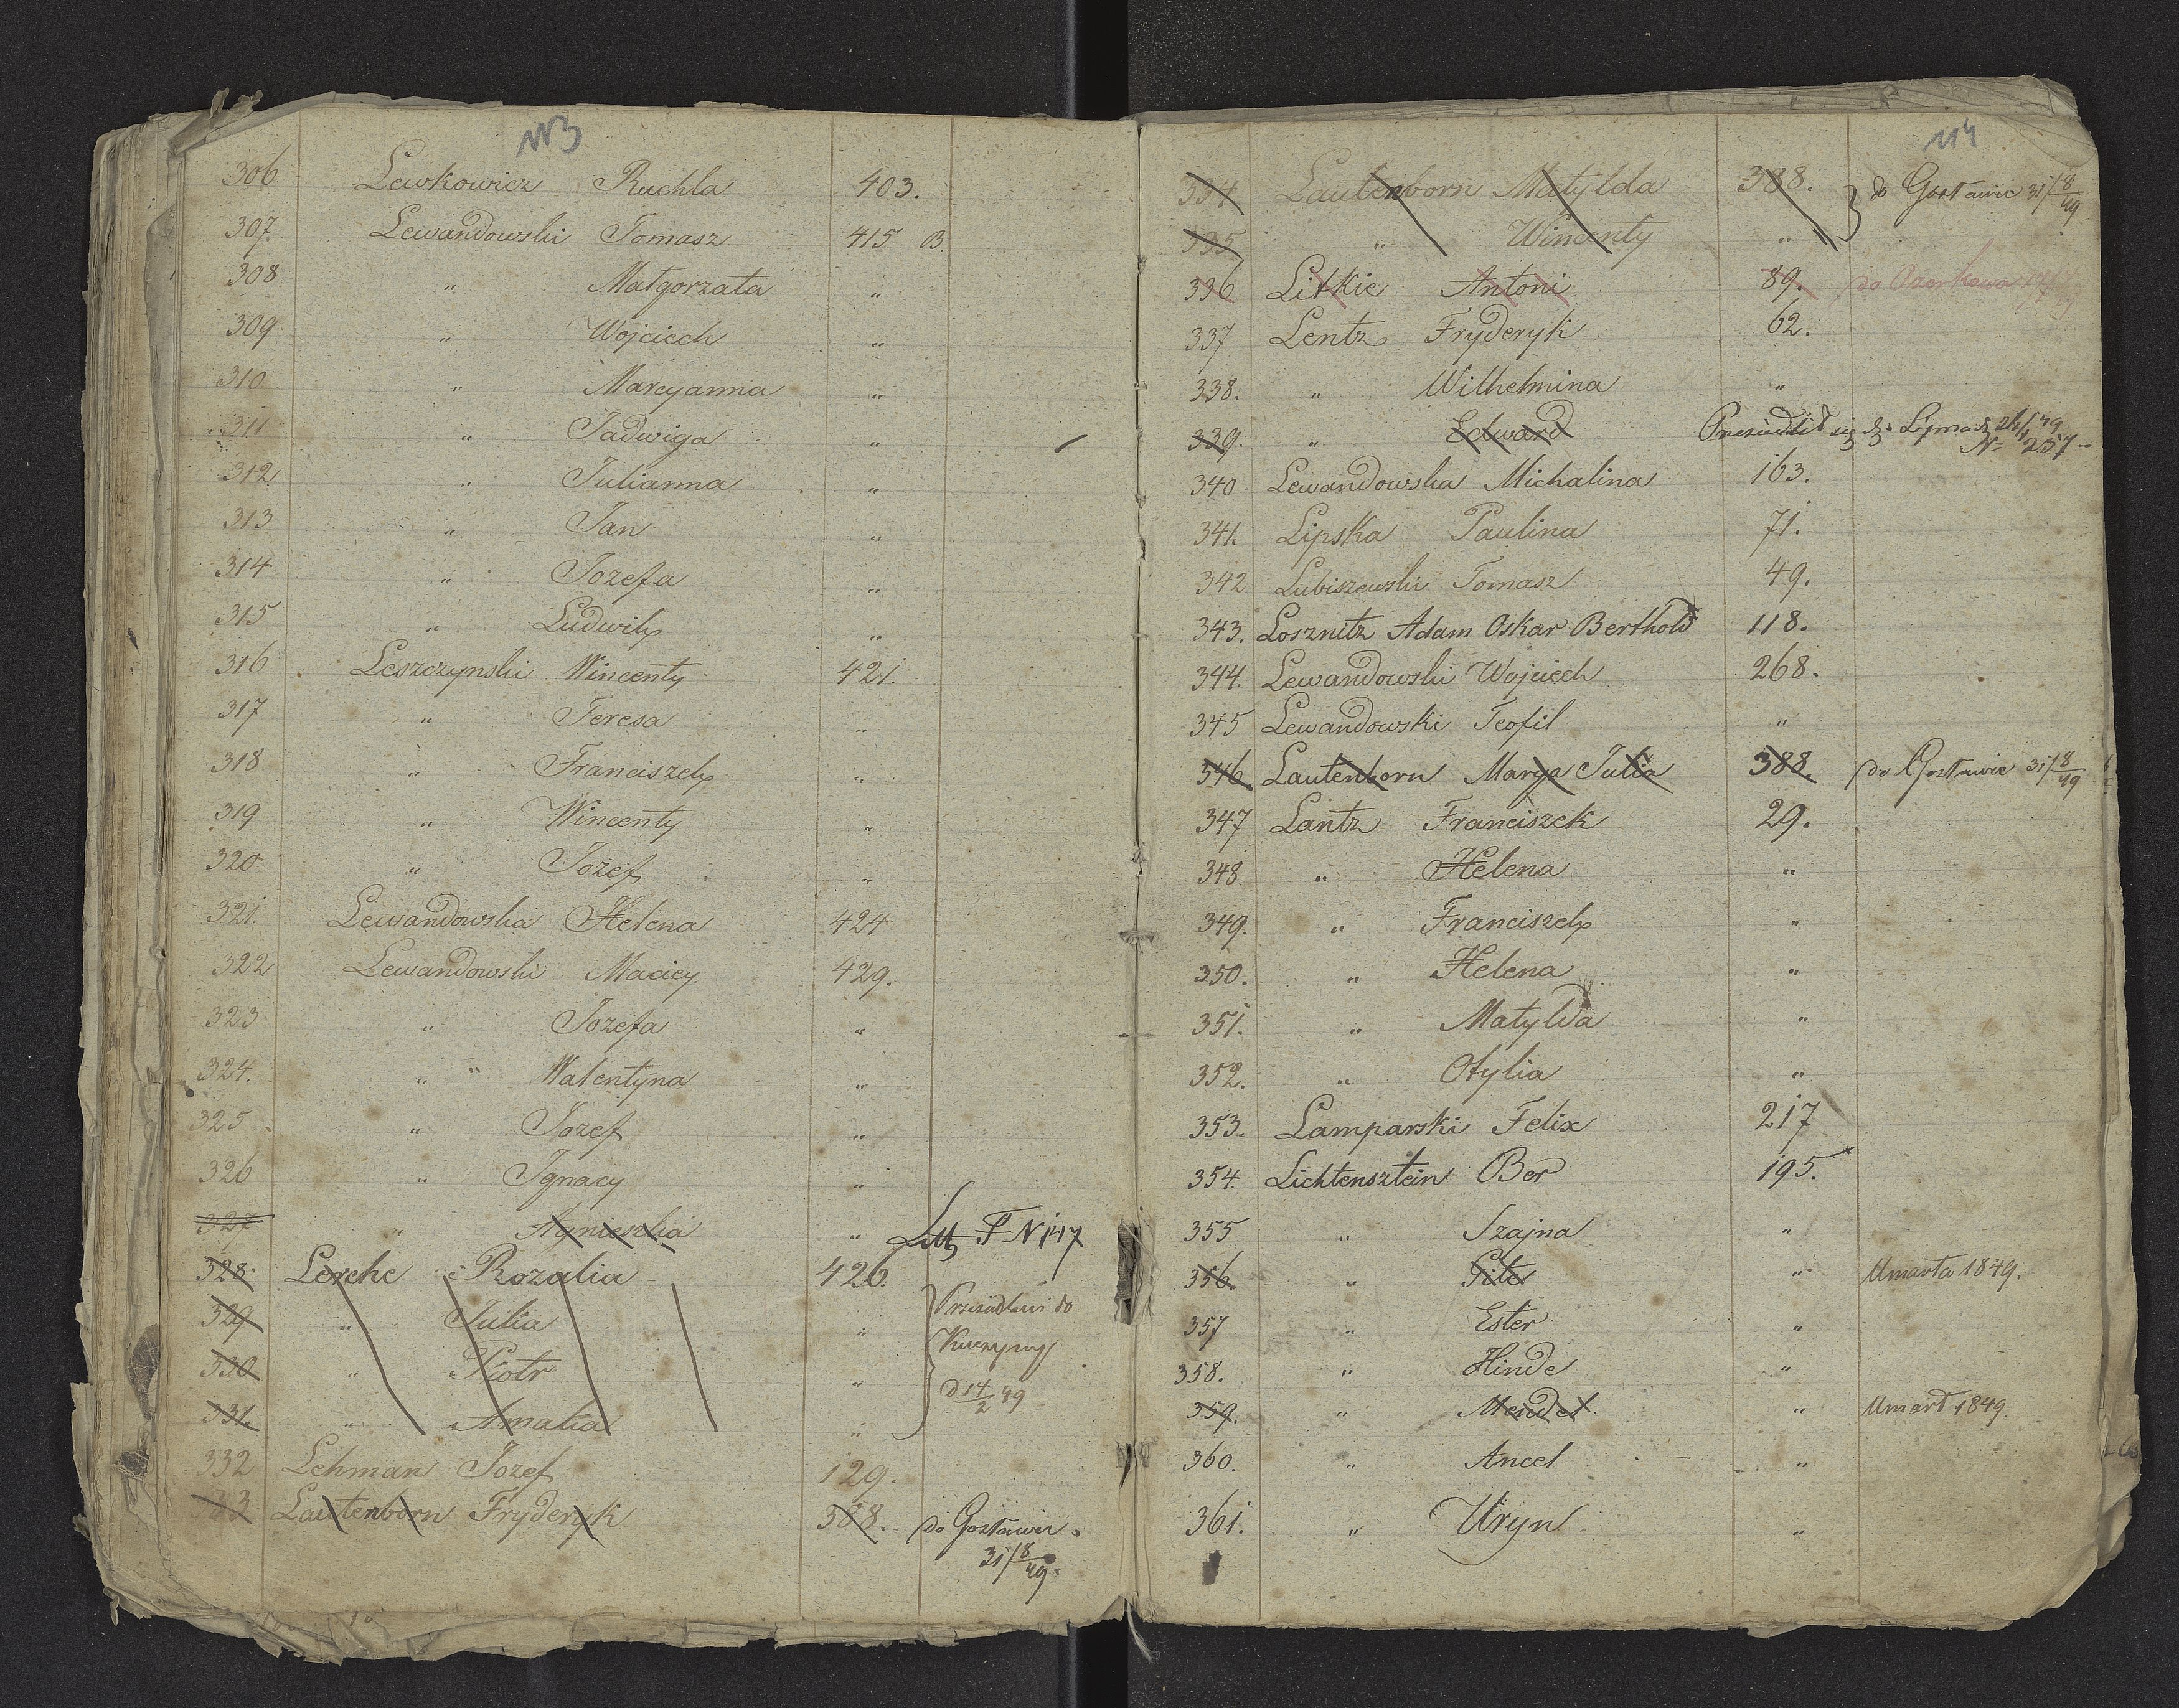 113
306 Lewkowicz Ruchla 403.
307. Lewandowski Tomasz 415 B.
308 " Małgorzata "
309 " Wojciech "
310 " Marcyanna "
311 " Jadwiga "
312 " Julianna "
313 " Jan "
314 " Jozefa "
315 " Ludwik "
316 Leszczynski Wincenty 421.
317 " Teresa "
318 " Franciszek "
319 " Wincenty "
320 " Jozef "
321. Lewandowska Helena 424
322 Lewandowski Maciey 429.
323 " Jozefa "
324. " " Walentyna "
325 " Jozef "
326 " Ignacy "
327 " Agnieszka " Litt F N 147
328. Lerche Rozalia 426.
329 " Julia " do
330 " Piotr "
331. " Amalia " d 14/2 49
332 Lehman Jozef 129.
333 Lautenborn Fryderyk 388. do
31/8 49.
114
334 Lautenborn Matylda 388. do 31/8 49
335 " Wincenty "
336 Litkie Antoni 89. do Ozorkowa
337 Lentz Fryderyk 62.
338. " Wilhelmina "
339. " Edward się do
N 257 –
340 Lewandowska Michalina 163.
341. Lipska Paulina 71.
342 Lubiszewski Tomasz 49.
343. Losznitz Adam Oskar Berthold 118.
344. Lewandowski Wojciech 268.
345 Lewandowski Teofil "
346 Lautenborn Marya Julia 388. do 31/8 49
347 Lantz Franciszek 29.
348 " Helena "
349. " Franciszek "
350. " Helena "
351. " Matylda "
352. " Otylia "
353. Lamparski Felix 217
354. Lichtensztein Ber 195.
355 " Szajna "
356. " Gitel " Umarła 1849.
357 " Ester "
358. " Hinde "
359. " Mendel " Umarł 1849
360. " Ancel "
361. " Uryn "